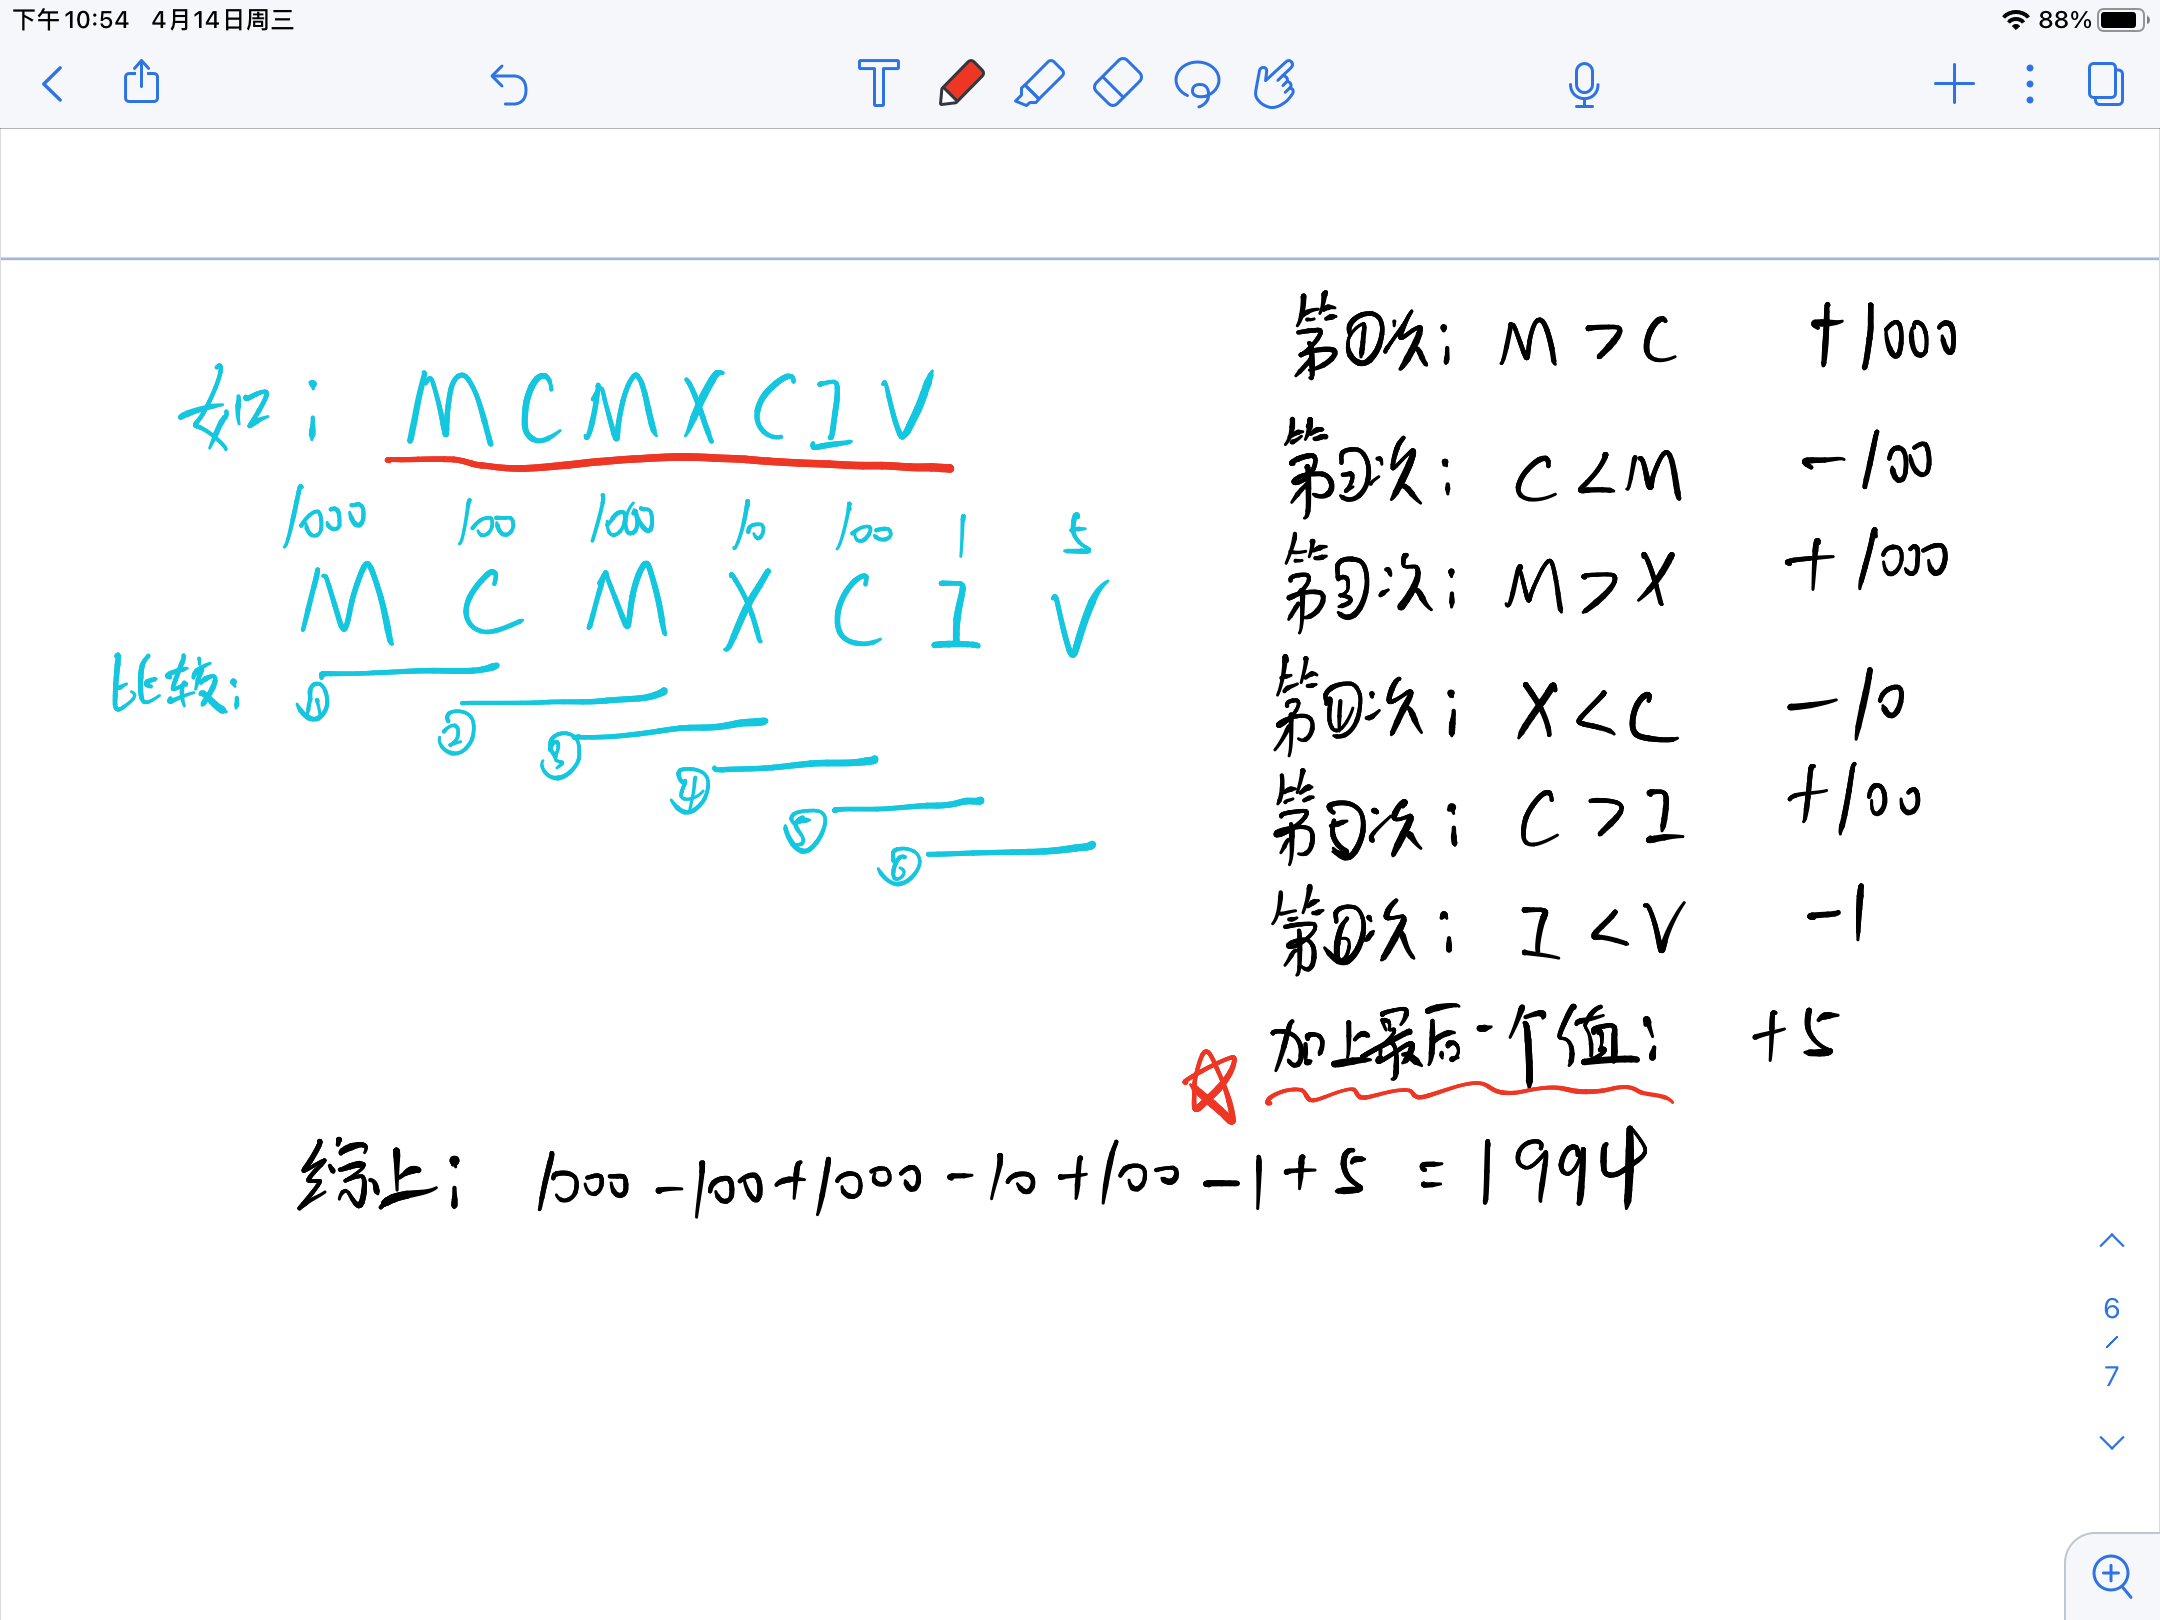 下午10:54 4月14日周三
88%
如: MCMXCIV
1000 100 1000 10 100 1 5
M C M X C I V
比较:
①
②
③
④
⑤
⑥
第①次: M > C +1000
第②次: C < M -100
第③次: M > X +1000
第④次: X < C -10
第⑤次: C > I +100
第⑥次: I < V -1
加上最后一个值: +5
综上: 1000-100+1000-10+100-1+5 = 1994
6
/
7